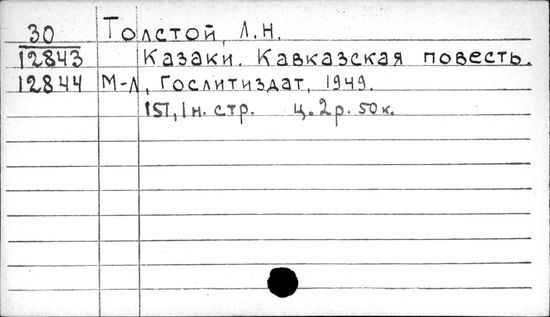 30 Толстой, Л.Н.
12843 Казаки. Кавказская повесть.
12844 М-Л, Гослитиздат, 1949.
151, 1 н. стр. ц. 2 р. 50 к.